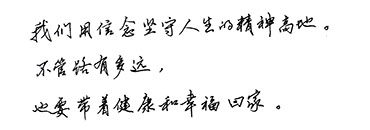 我们用信念坚守人生的精神高地。
不管路有多远，
也要带着健康和幸福回家。